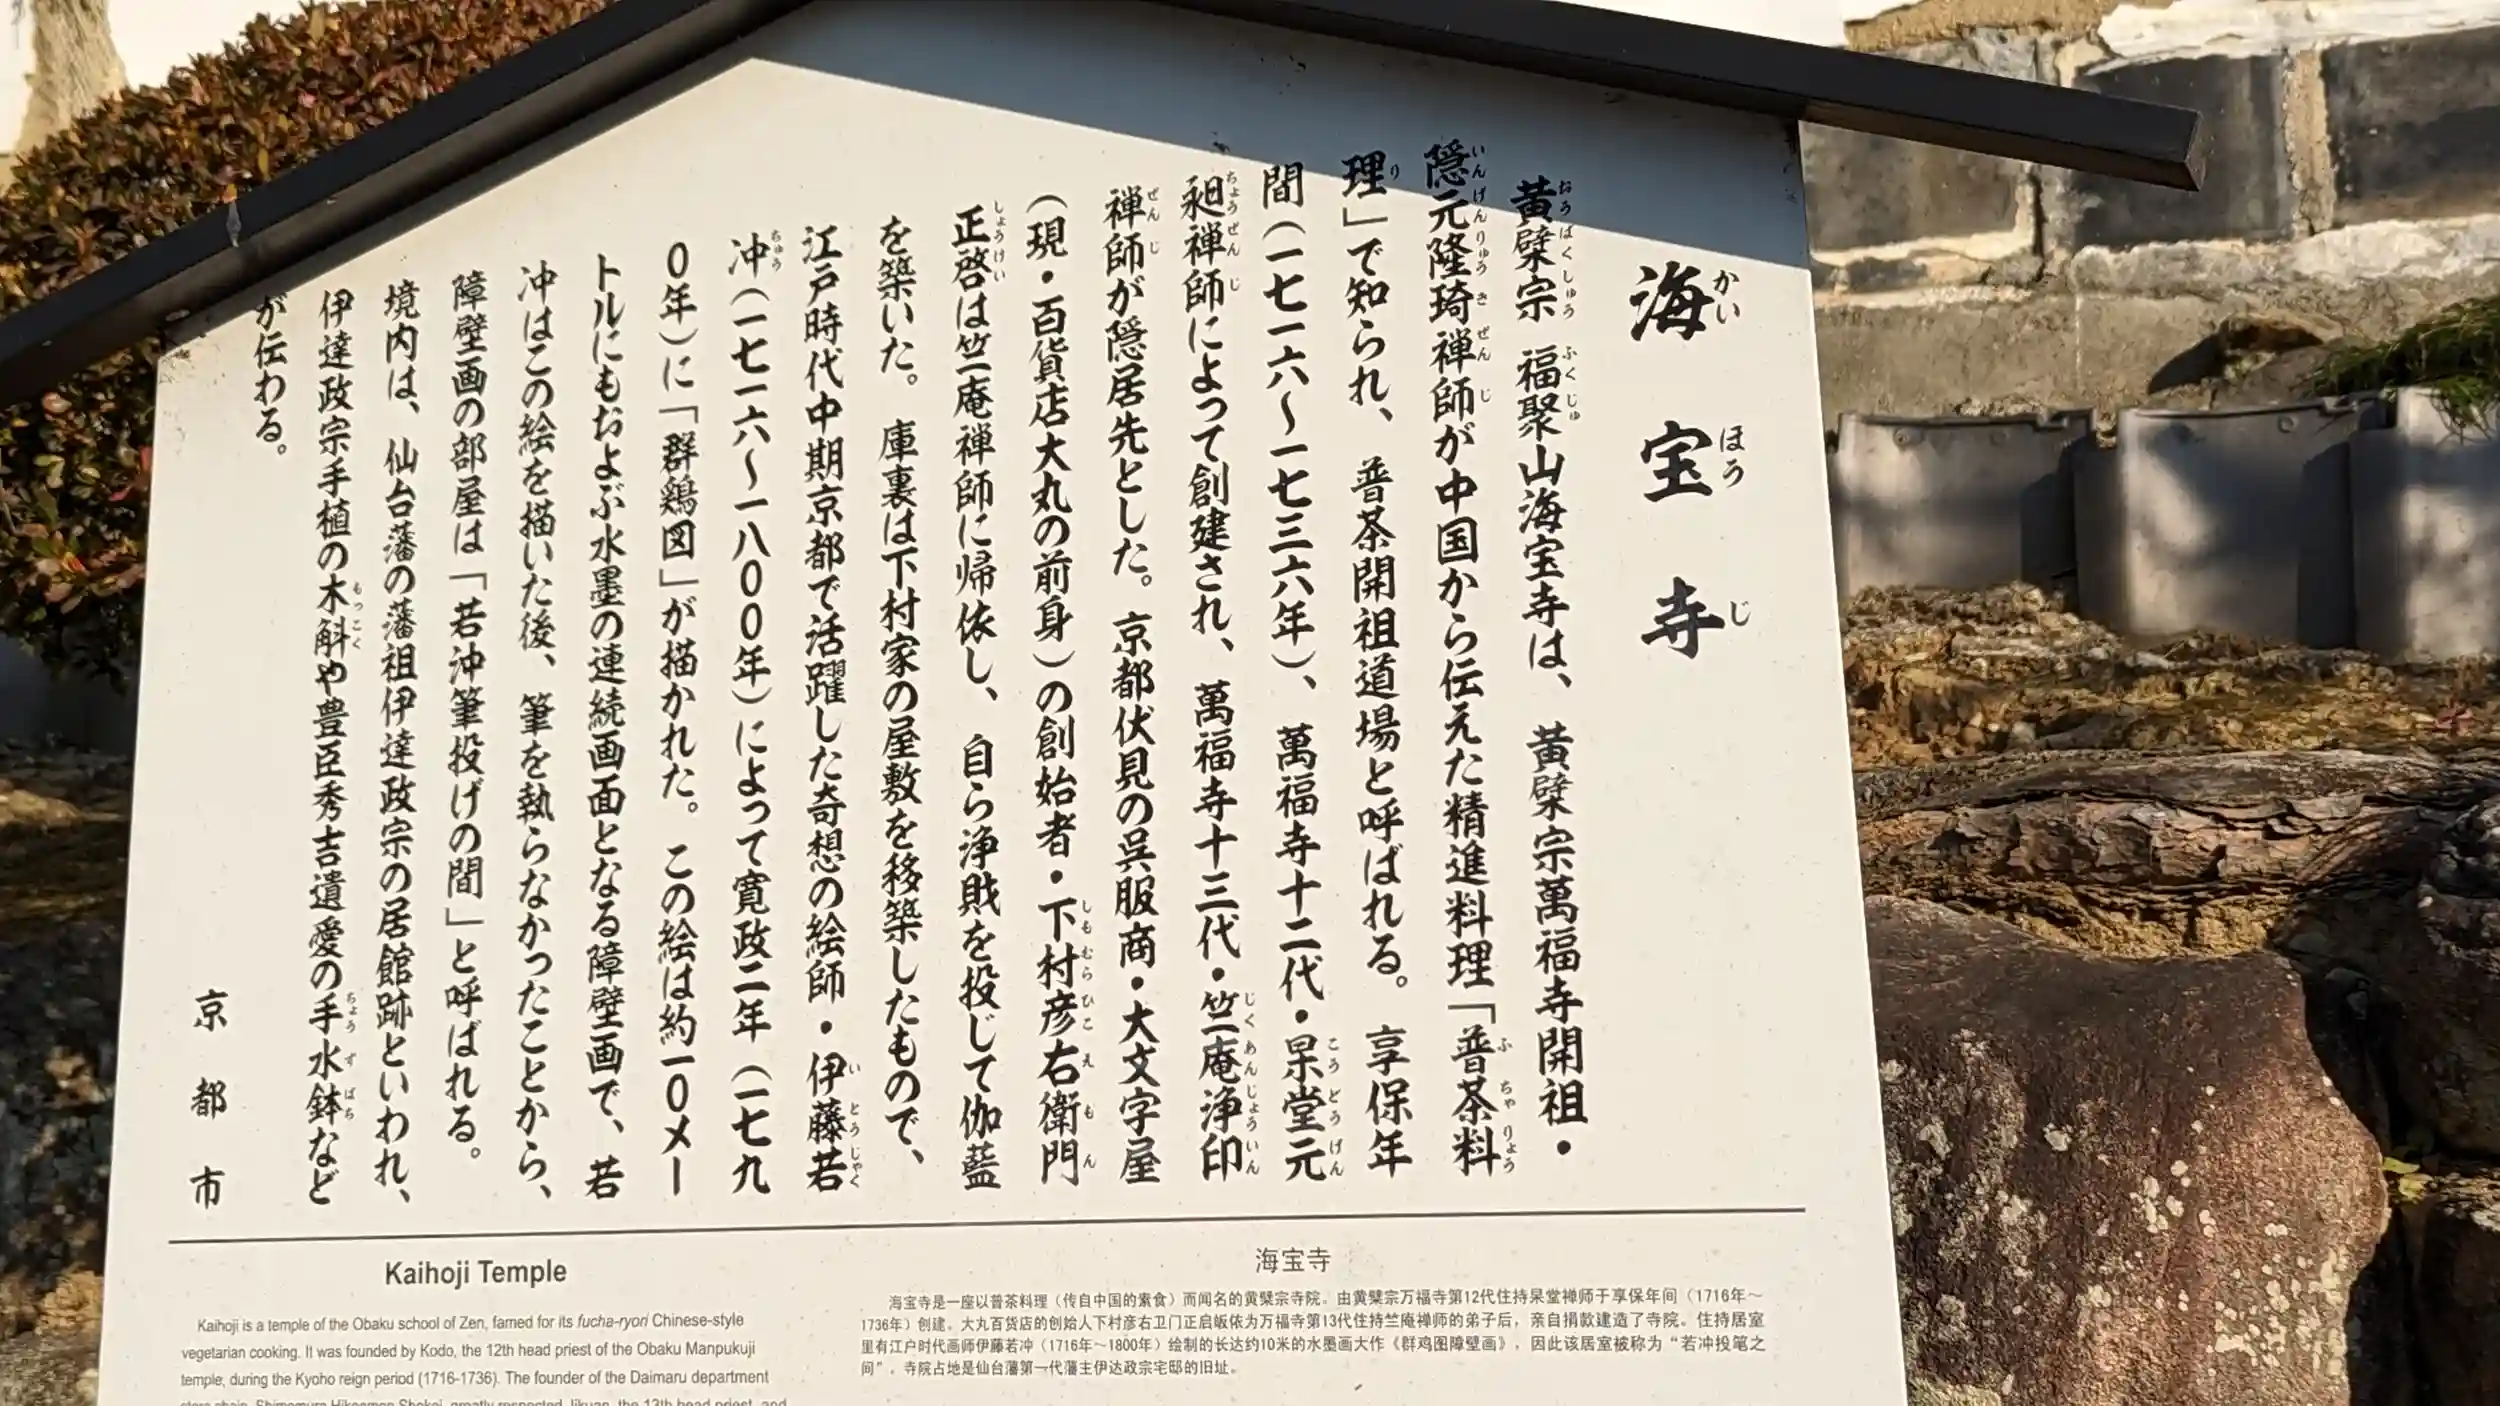 海宝寺
かい ほう じ
黄檗宗 福聚山海宝寺は、黄檗宗萬福寺開祖・
おうばくしゅう ふくじゅ
隠元隆琦禅師が中国から伝えた精進料理「普茶料
いんげんりゅうきぜんじ ふちゃりょう
理」で知られ、普茶開祖道場と呼ばれる。享保年
り
間(一七一六〜一七三六年)、萬福寺十二代・杲堂元
こうどうげん
昶禅師によって創建され、萬福寺十三代・竺庵浄印
ちょうぜんじ じくあんじょういん
禅師が隠居先とした。京都伏見の呉服商・大文字屋
ぜんじ
(現・百貨店大丸の前身)の創始者・下村彦右衛門
しもむらひこえもん
正啓は竺庵禅師に帰依し、自ら浄財を投じて伽藍
しょうけい
を築いた。庫裏は下村家の屋敷を移築したもので、
江戸時代中期京都で活躍した奇想の絵師・伊藤若
いとうじゃく
冲(一七一六〜一八〇〇年)によって寛政二年(一七九
ちゅう
〇年)に「群鶏図」が描かれた。この絵は約一〇メー
トルにもおよぶ水墨の連続画面となる障壁画で、若
冲はこの絵を描いた後、筆を執らなかったことから、
障壁画の部屋は「若沖筆投げの間」と呼ばれる。
境内は、仙台藩の藩祖伊達政宗の居館跡といわれ、
伊達政宗手植の木斛や豊臣秀吉遺愛の手水鉢など
もっこく ちょうずばち
が伝わる。
京都市
Kaihoji Temple
Kaihoji is a temple of the Obaku school of Zen, famed for its fucha-ryori Chinese-style
vegetarian cooking. It was founded by Kodo, the 12th head priest of the Obaku Manpukuji
temple, during the Kyoho reign period (1716-1736). The founder of the Daimaru department
store chain, Shimomura Hikoemon Shokei, greatly respected Jikuan, the 13th head priest, and
海宝寺
海宝寺是一座以普茶料理(传自中国的素食)而闻名的黄檗宗寺院。由黄檗宗万福寺第12代住持杲堂禅师于享保年间(1716年～
1736年)创建。大丸百货店的创始人下村彦右卫门正启皈依为万福寺第13代住持竺庵禅师的弟子后，亲自捐款建造了寺院。住持居室
里有江户时代画师伊藤若冲(1716年～1800年)绘制的长达约10米的水墨画大作《群鸡图障壁画》，因此该居室被称为“若冲投笔之
间”。寺院占地是仙台藩第一代藩主伊达政宗宅邸的旧址。